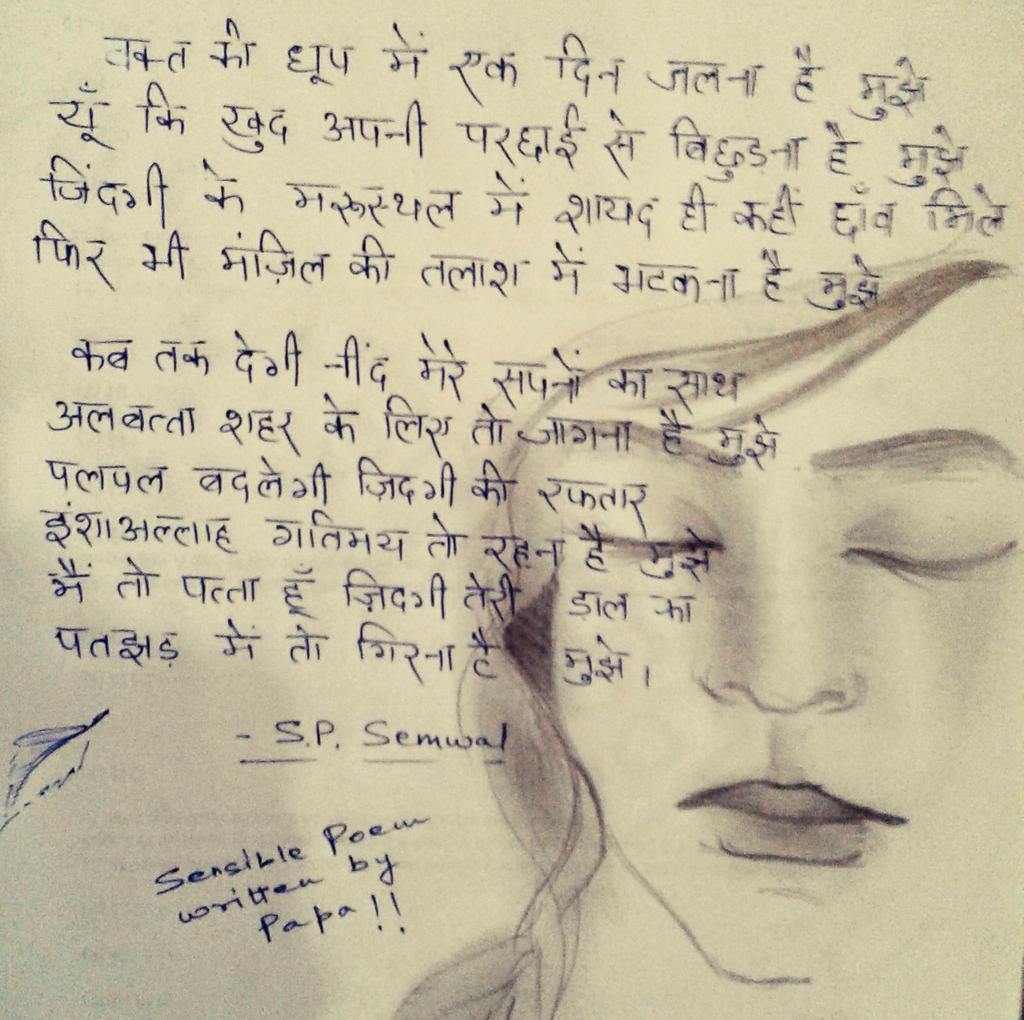 वक्त की धूप में एक दिन जलना है मुझे
यूँ कि खुद अपनी परछाई से बिछुड़ना है मुझे
जिंदगी के मरूस्थल में शायद ही कहीं छाँव मिले
फिर भी मंज़िल की तलाश में भटकना है मुझे
कब तक देगी नींद मेरे सपनों का साथ
अलबत्ता शहर के लिए तो जागना है मुझे
पलपल बदलेगी ज़िदगी की रफतार
इंशाअल्लाह गतिमय तो रहना है मुझे
मैं तो पत्ता हूँ ज़िदगी तेरी डाल का
पतझड़ में तो गिरना है मुझे।
- S.P. Semwal
Sensible Poem
written by
Papa!!